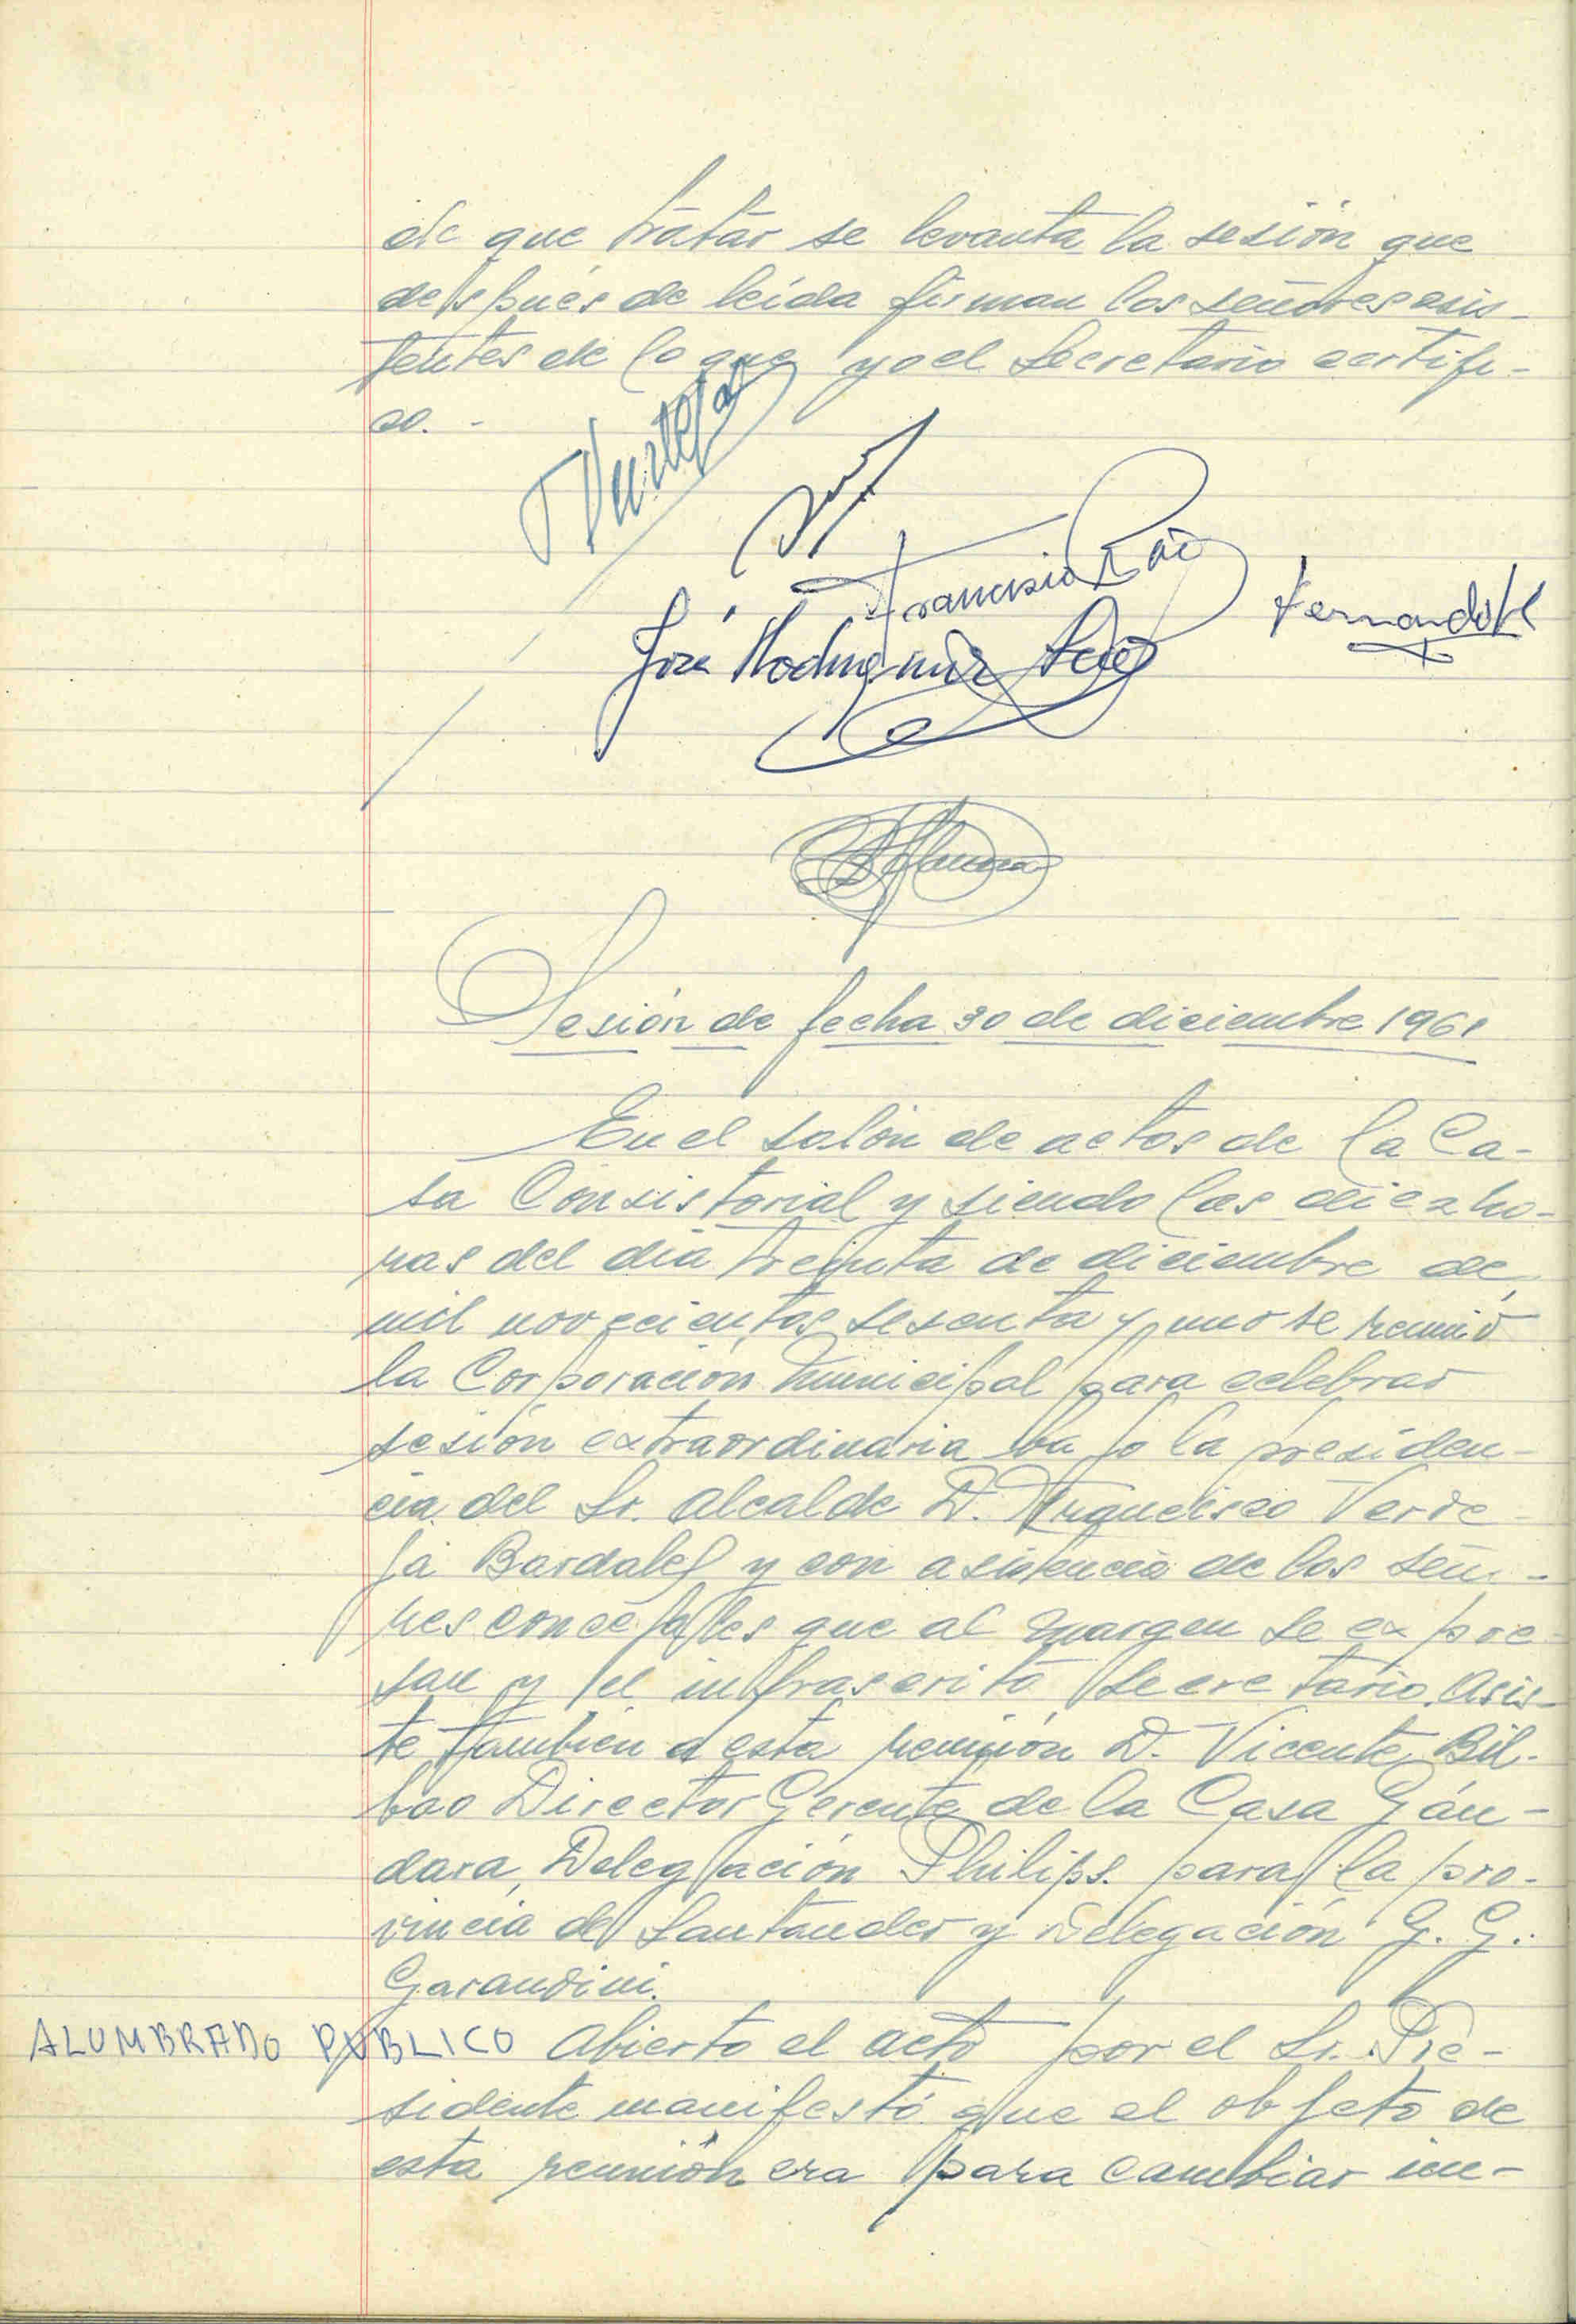 de que tratar se levanta la sesión que
después de leída firman los señores asis-
tentes de lo que yo el Secretario certifi-
co. -
Francisco
José Rodríguez
Fernando
Sesión de fecha 30 de diciembre 1961
En el salón de actos de la Ca-
sa Consistorial y siendo las diez ho-
ras del día treinta de diciembre de
mil novecientos sesenta y uno se reunió
la Corporación Municipal para celebrar
sesión extraordinaria bajo la presiden-
cia del Sr. Alcalde D. Francisco Verde-
ja Bardales y con asistencia de los seño-
res concejales que al margen se expre-
san y el infrascrito Secretario. Asis-
te también a esta reunión D. Vicente Bil-
bao Director Gerente de la Casa Gán-
dara, Delegación Philips. para la pro-
vincia de Santander y Delegación G. G.
Garandini.
ALUMBRADO PUBLICO Abierto el acto por el Sr. Pre-
sidente manifestó que el objeto de
esta reunión era para cambiar im-